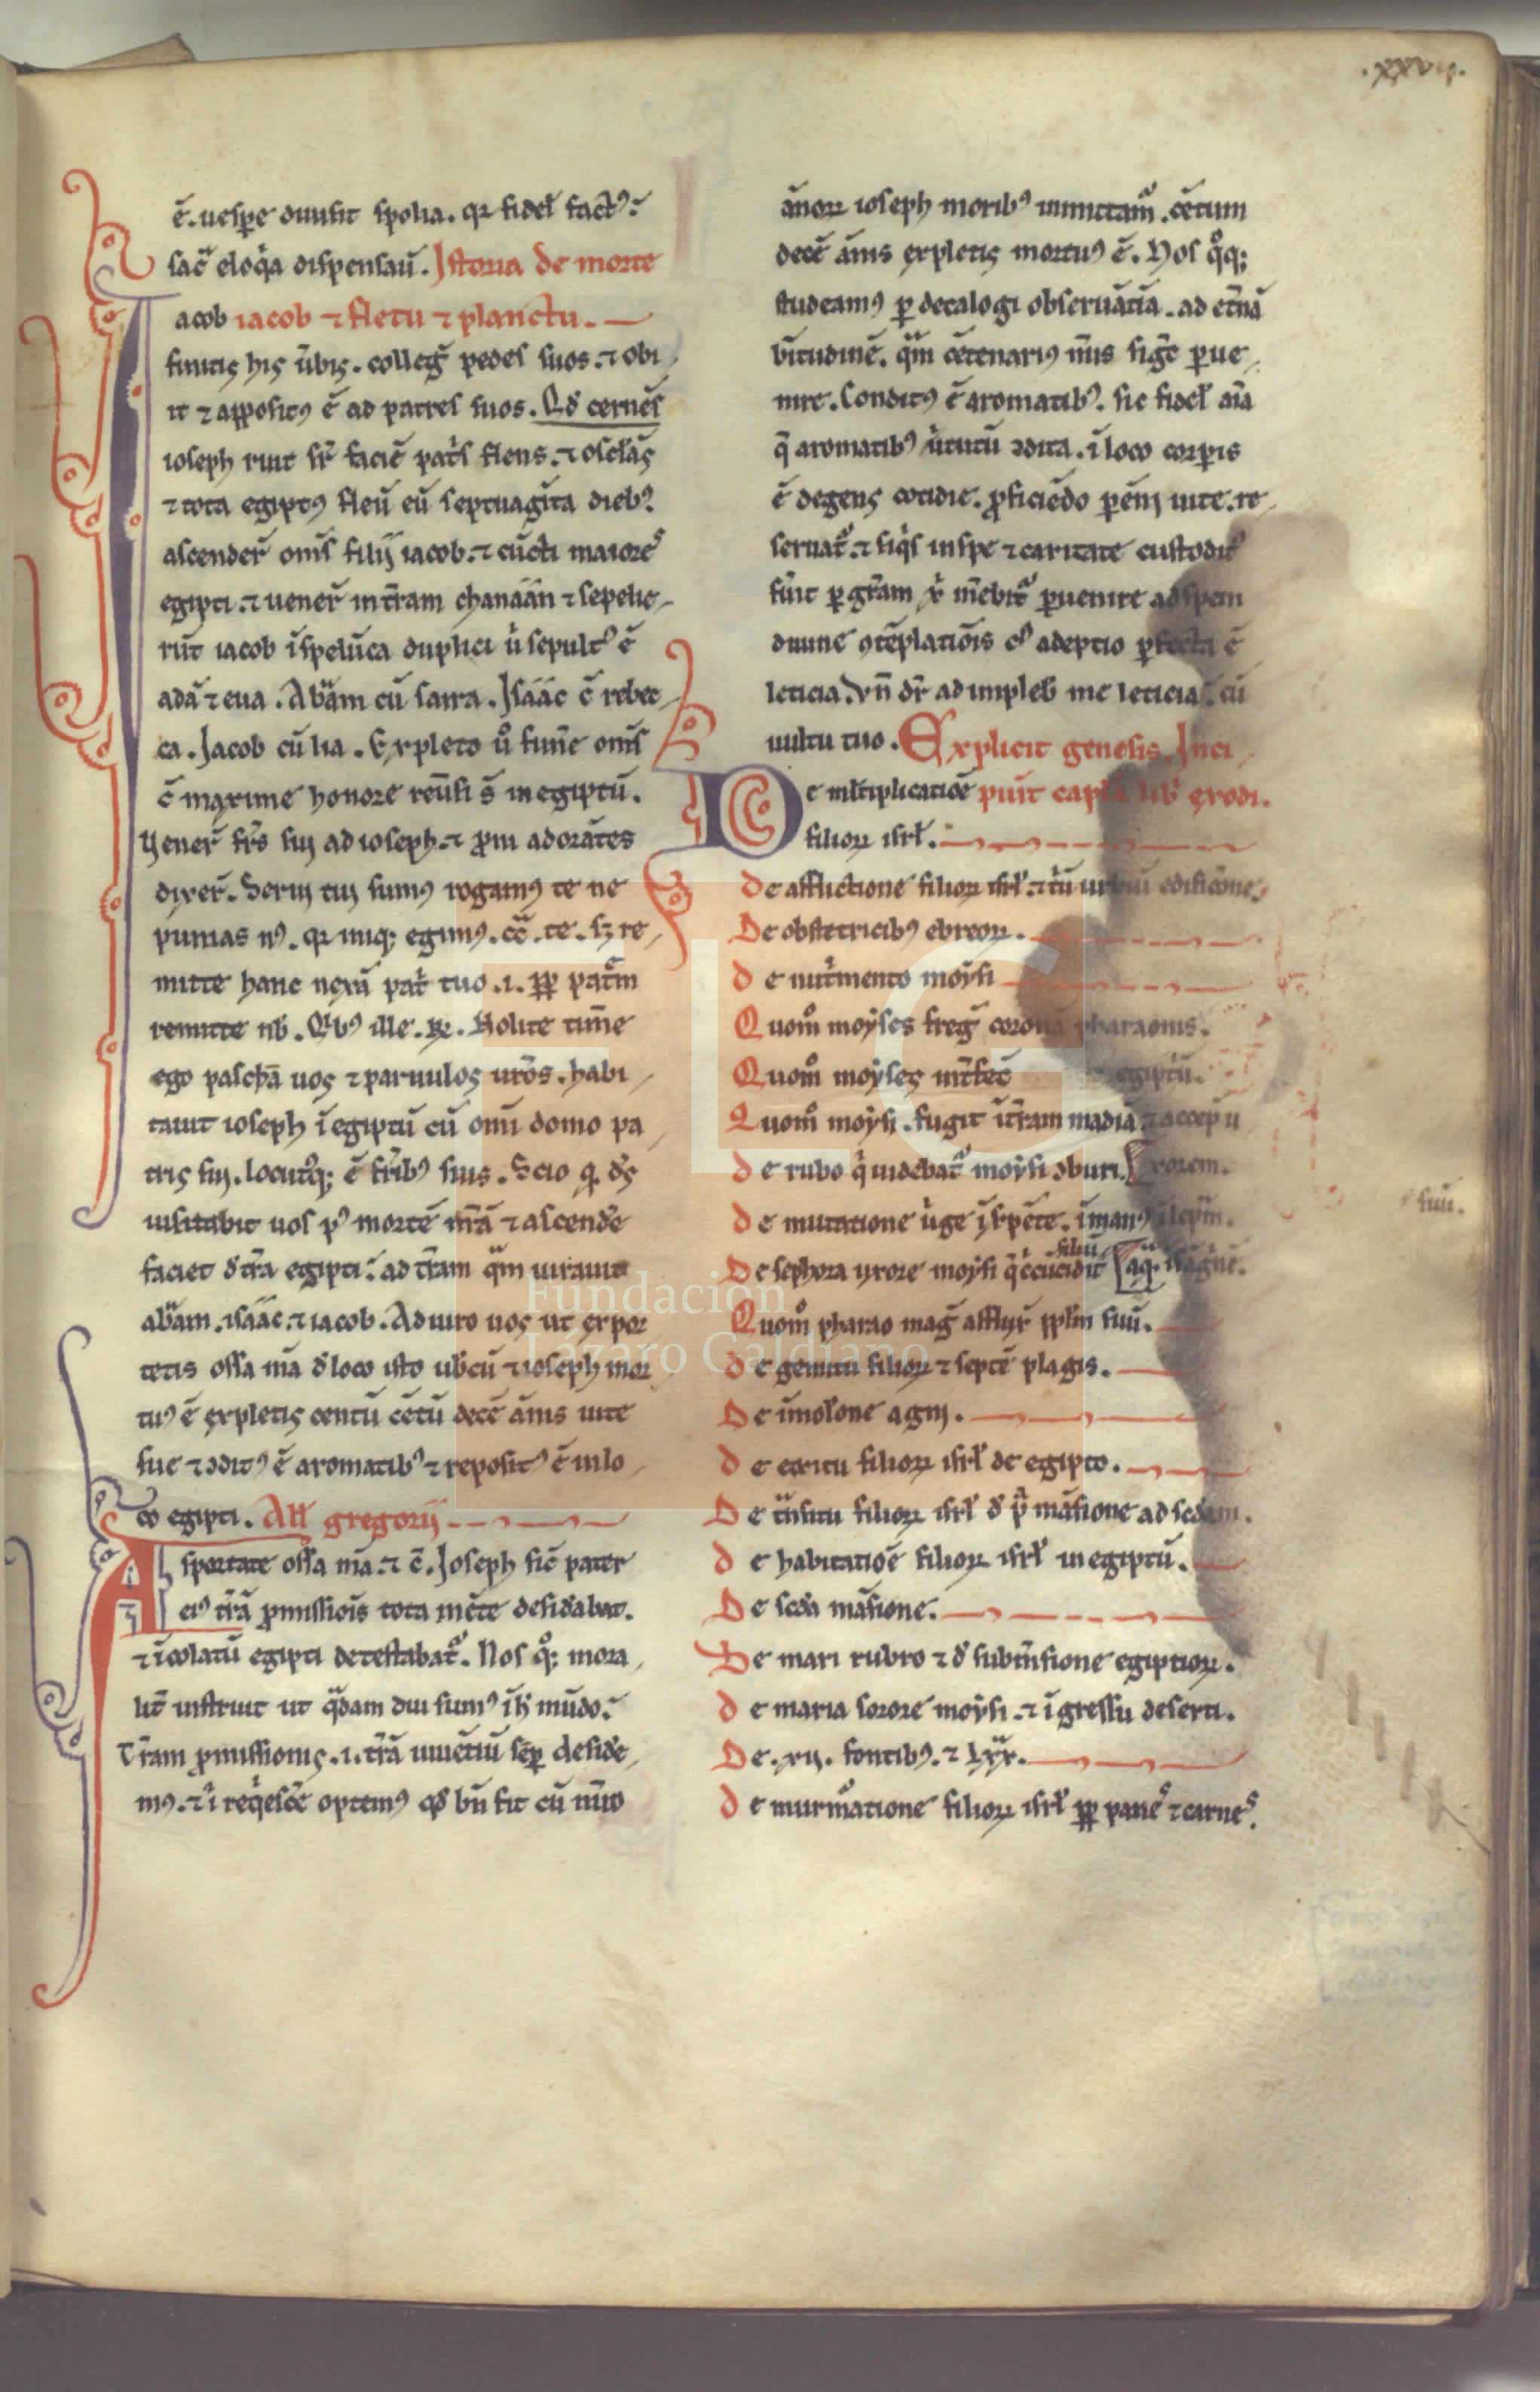 .xxvii.
ē. uespe diuisit spolia. qr fidel̃ fact᷒.
sac̃ eloq̇a dispensau᷑. Istoria de morte
acob iacob ⁊ fletu ⁊ planctu.
finitis his ūbis. colleḡ pedes suos. ⁊ obi
it ⁊ apposit᷒ ē ad patres suos. Qd̃ cernēs
ioseph ruit sr̄ faciē patis flens. ⁊ osclās
⁊ tota egipt᷒ fleū eū septuagīta dieb᷒.
ascender̄ om̄s filij iacob. ⁊ cūcti maiores
egipti. ⁊ uener̄ in tr̄am chanáán ⁊ sepelie
rūt iacob ī spelūca duplici ů sepult᷒ ē
adā ⁊ eua. Abāam cū sarra. Isáác c̄ rebec
ca. Jacob cū lia. Expleto ů fun̄e om̄s
c̄ maxime honore reūsi s̄ in egiptū.
Uener̄ fr̄s sui ad ioseph. ⁊ ꝓni adorātes
dixer̄. Serui tui sum᷒ rogam᷒ te ne
punias n᷒. qr iniq; egim᷒. cō. te. sȝ re
mitte hanc nexā pat̄ tuo .i. ꝓp pat̄m
remitte nb̄. Qib᷒ ille. R̃. Nolite tim̄e
ego paschā uos ⁊ paruulos ur̄os. habi
tauit ioseph ī egiptū cū om̄i domo pa
tris sui. locut᷒q; ē fr̄ib᷒ suis. Scio q. ds̄
uisitabit uos p᷒ mortē m̄ā ⁊ ascend̄e
faciet d̄ tr̄a egipti. ad tr̄am quā iurauit
abāam. isáác. ⁊ iacob. Adiuro uos ut expor
tetis ossa m̄a d̄ loco isto ub̄cū ⁊ ioseph mor
tu᷒ ē expletis centū cētū decē ānis uite
sue ⁊ ꝯdit᷒ ē aromatib᷒ ⁊ reposit᷒ ē in lo
co egipti. All̄ gregorij
Asportate ossa m̄a. ⁊ c̄. Joseph sic̄ pater
ei᷒ tr̄ā ꝓmissiois tota mēte desid̄abat.
⁊ īcolatū egipti detestabat̃. Nos q̊; mora
lit̄ instruit ut qdam diu sum᷒ ī h̄ mūdo.
Tr̄am ꝓmissionis .i. tr̄ā uiuētiū sēꝑ deside
m᷒. ⁊ ī reqescēe optem᷒ qd̄ bn̄ fit cū nu᷑o
ānoꝝ ioseph morib᷒ imitam̃. cētum
decē ānis expletis mortu᷒ ē. Nos q̊q;
studeam᷒ ꝑ decalogi obseruātīa. ad et̄nā
b̄titudinē. quā cētenari᷒ nu᷑s sigt ꝑue
nire. Condit᷒ ē aromatib᷒. sic fidel̃ aīa
q̄ aromatib᷒ ůtutū ꝯdita. ī loco corꝑis
ē degens cotidie. ꝓficiēdo ꝑ em̄ uite. re
seruat̃. ⁊ siq̇s in spe ⁊ caritate custodit̃
sint ꝑ gr̄am x̄ in̄ebit̃ ꝑuenire ad spem
diuine ꝯtēplatiōis c᷒ adeptio ꝑfecta ē
leticia. Vn̄ dr̄ adimpleb̄ me leticia. cū
uultu tuo. Explicit genesis. Inci
De ml̄tiplicatiōe piūt capl̄a lib̄ exodi.
filioꝝ isrl̄.
De afflictione filioꝝ isrl̄. ⁊ t̄ū urbiū edificōne.
De obstetricib᷒ ebreoꝝ.
de nut̄mento moẏsi
Quom̊ moẏses freḡ coronā pharaonis.
Quom̊ moẏses int̄fec̄ egiptiū.
Quom̊ moẏsi. fugit ī tr̄am madiā ⁊ accep̄ u
de rubo q̇ uidebat̃ moẏsi ꝯburi. xorem.
de mutatione ůge ī srpēte. ī man᷒
De sephora uxore moẏsi q̄ c̄cucidit filiū suū.
Quom̊ pharao maḡ afflix̄ ppl̄m suū.
de gemitu filioꝝ ⁊ septē plagis.
De īmolōne agni.
de exitu filioꝝ isrl̄ de egipto.
De tn̄situ filioꝝ isrl̄ d̄ p̄ māsione ad sedam.
de habitatiōe filioꝝ isrl̄ in egiptū.
De seda māsione.
De mari rubro ⁊ d̄ subm̄sione egiptioꝝ.
de maria sorore moẏsi. ⁊ īgressu deserti.
De .xii. fontib᷒. ⁊ lxx.
de murm̄atione filioꝝ isrl̄ ꝓp panes ⁊ carnes.
FLG
Fundación
Lázaro Galdiano